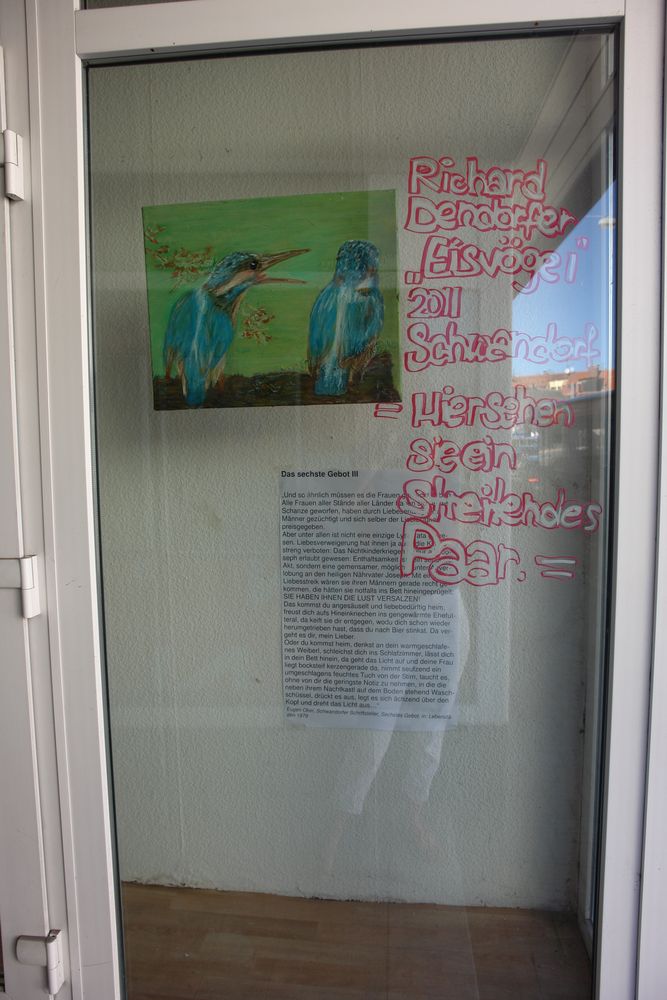 Richard
Dendorfer
„Eisvögel"
2011
Schwandorf
= Hier sehen
sie ein
streitendes
Paar. =
Das sechste Gebot III
„Und so ähnlich müssen es die Frauen
Alle Frauen aller Stände aller Länder
Schanze geworfen, haben durch
Männer gezüchtigt und sich selber der
preisgegeben.
Aber unter allen ist nicht eine einzige
sen. Liebesverweigerung hat ihnen ja
streng verboten: Das Nichtkinderkriegen
seph erlaubt gewesen: Enthaltsamkeit
Akt, sondern eine gemeinsamer,
lobung an den heiligen Nährvater
Liebesstreik wären sie ihren Männern gerade recht
kommen, die hätten sie notfalls ins Bett hineingeprügelt.
SIE HABEN IHNEN DIE LUST VERSALZEN!
Das kommst du angesäuselt und liebebedürftig heim,
freust dich aufs Hineinkriechen ins gengewärmte Ehefut-
teral, da keift sie dir entgegen, wo du dich schon wieder
herumgetrieben hast, dass du nach Bier stinkst. Da ver-
geht es dir, mein Lieber.
Oder du kommst heim, denkst an dein warmgeschlafe-
nes Weiberl, schleichst dich ins Schlafzimmer, lässt dich
in dein Bett hinein, da geht das Licht auf und deine Frau
liegt bocksteif kerzengerade da, nimmt seufzend ein
umgeschlagens feuchtes Tuch von der Stirn, taucht es,
ohne von dir die geringste Notiz zu nehmen, in die die
neben ihrem Nachtkastl auf dem Boden stehend Wasch-
schüssel, drückt es aus, legt es sich ächzend über den
Kopf und dreht das Licht aus...."
Eugen Oker, Schwandorfer Schriftsteller, Sechstes Gebot, in:
den 1979